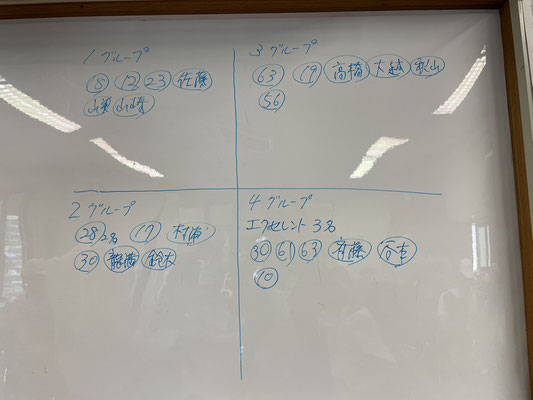 1グループ
8 12 23 佐藤
山崎
3グループ
63 19 高橋 大越
56
2グループ
28 2名 17 村浦
30 齋藤 鈴木
4グループ
エクセレント 3名
30 61 63 斉藤
10